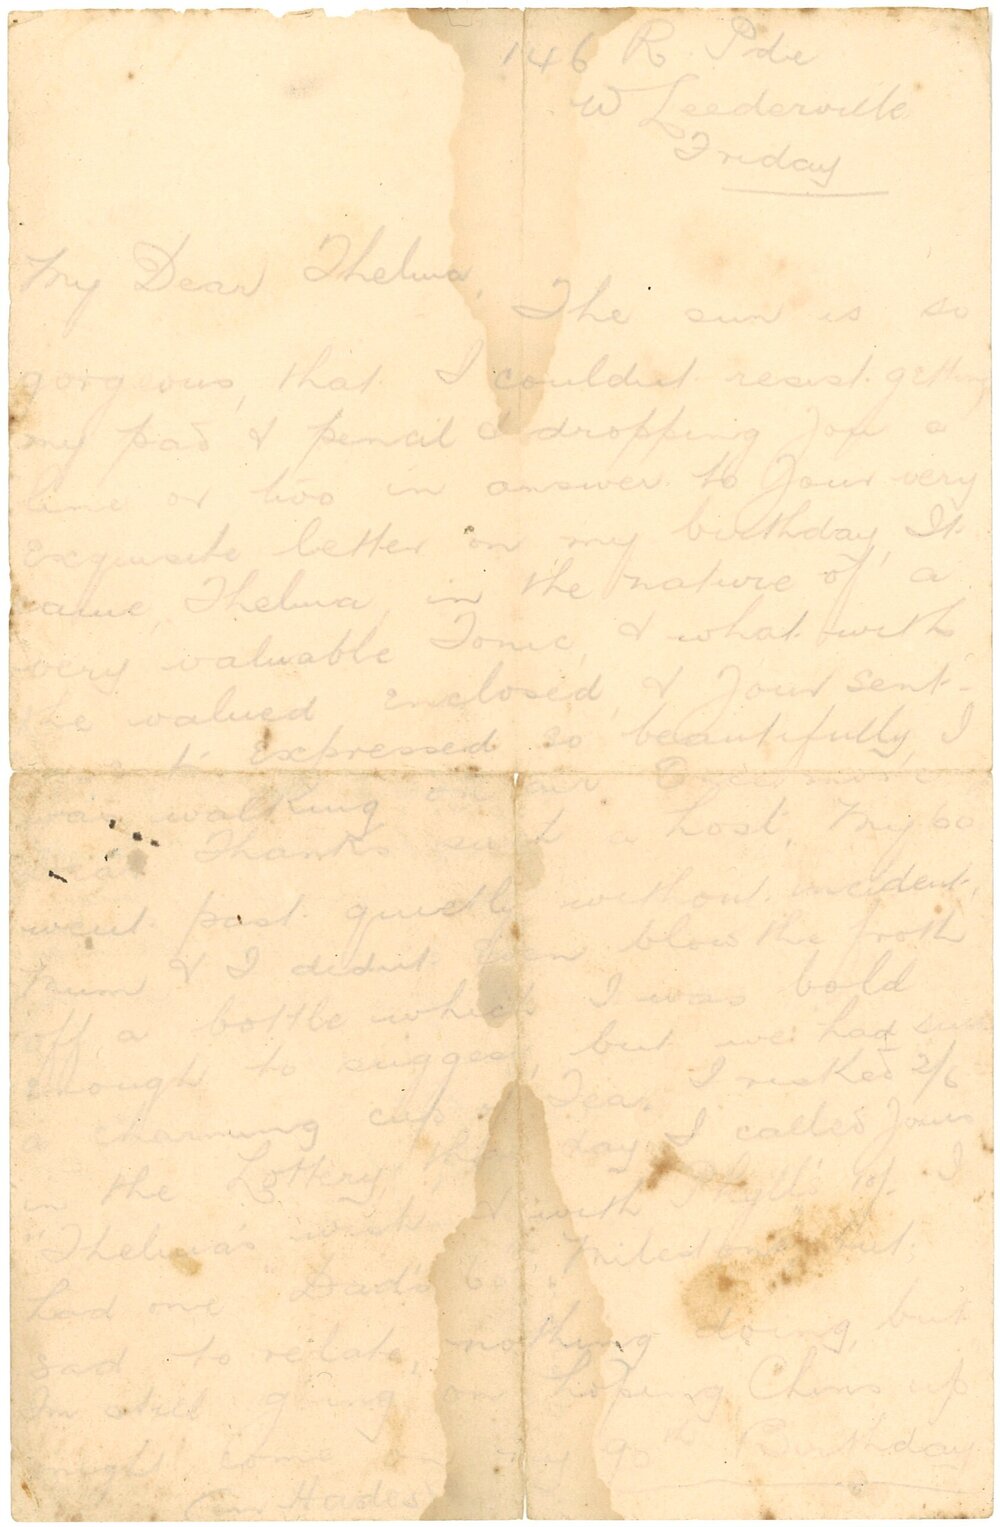 146 R Pde
W Leederville
Friday
My Dear Thelma,
The sun is so
gorgeous, that I couldnt resist getting
my pad & pencil & dropping you a
line or two in answer to your very
exquisite letter on my birthday, It
came, Thelma, in the nature of a
very valuable Tonic, & what with
the valued enclosed, & your sent-
expressed so beautifully, I
was walking on air Once more
Thanks such a host, My 60
went past quietly without incident,
Mum & I didnt even blow the froth
off a bottle which I was bold
enough to suggest, but we had
a charming cup of Tea, I risked 2/6
in the Lottery, that day I called yours
"Thelma's wish" & with Phyll's 10/- I
had one "Dad's 60th Milestone" but,
sad to relate, nothing doing, but
Im still going on hoping Chins up
might come on my 90th Birthday
(in Hades)